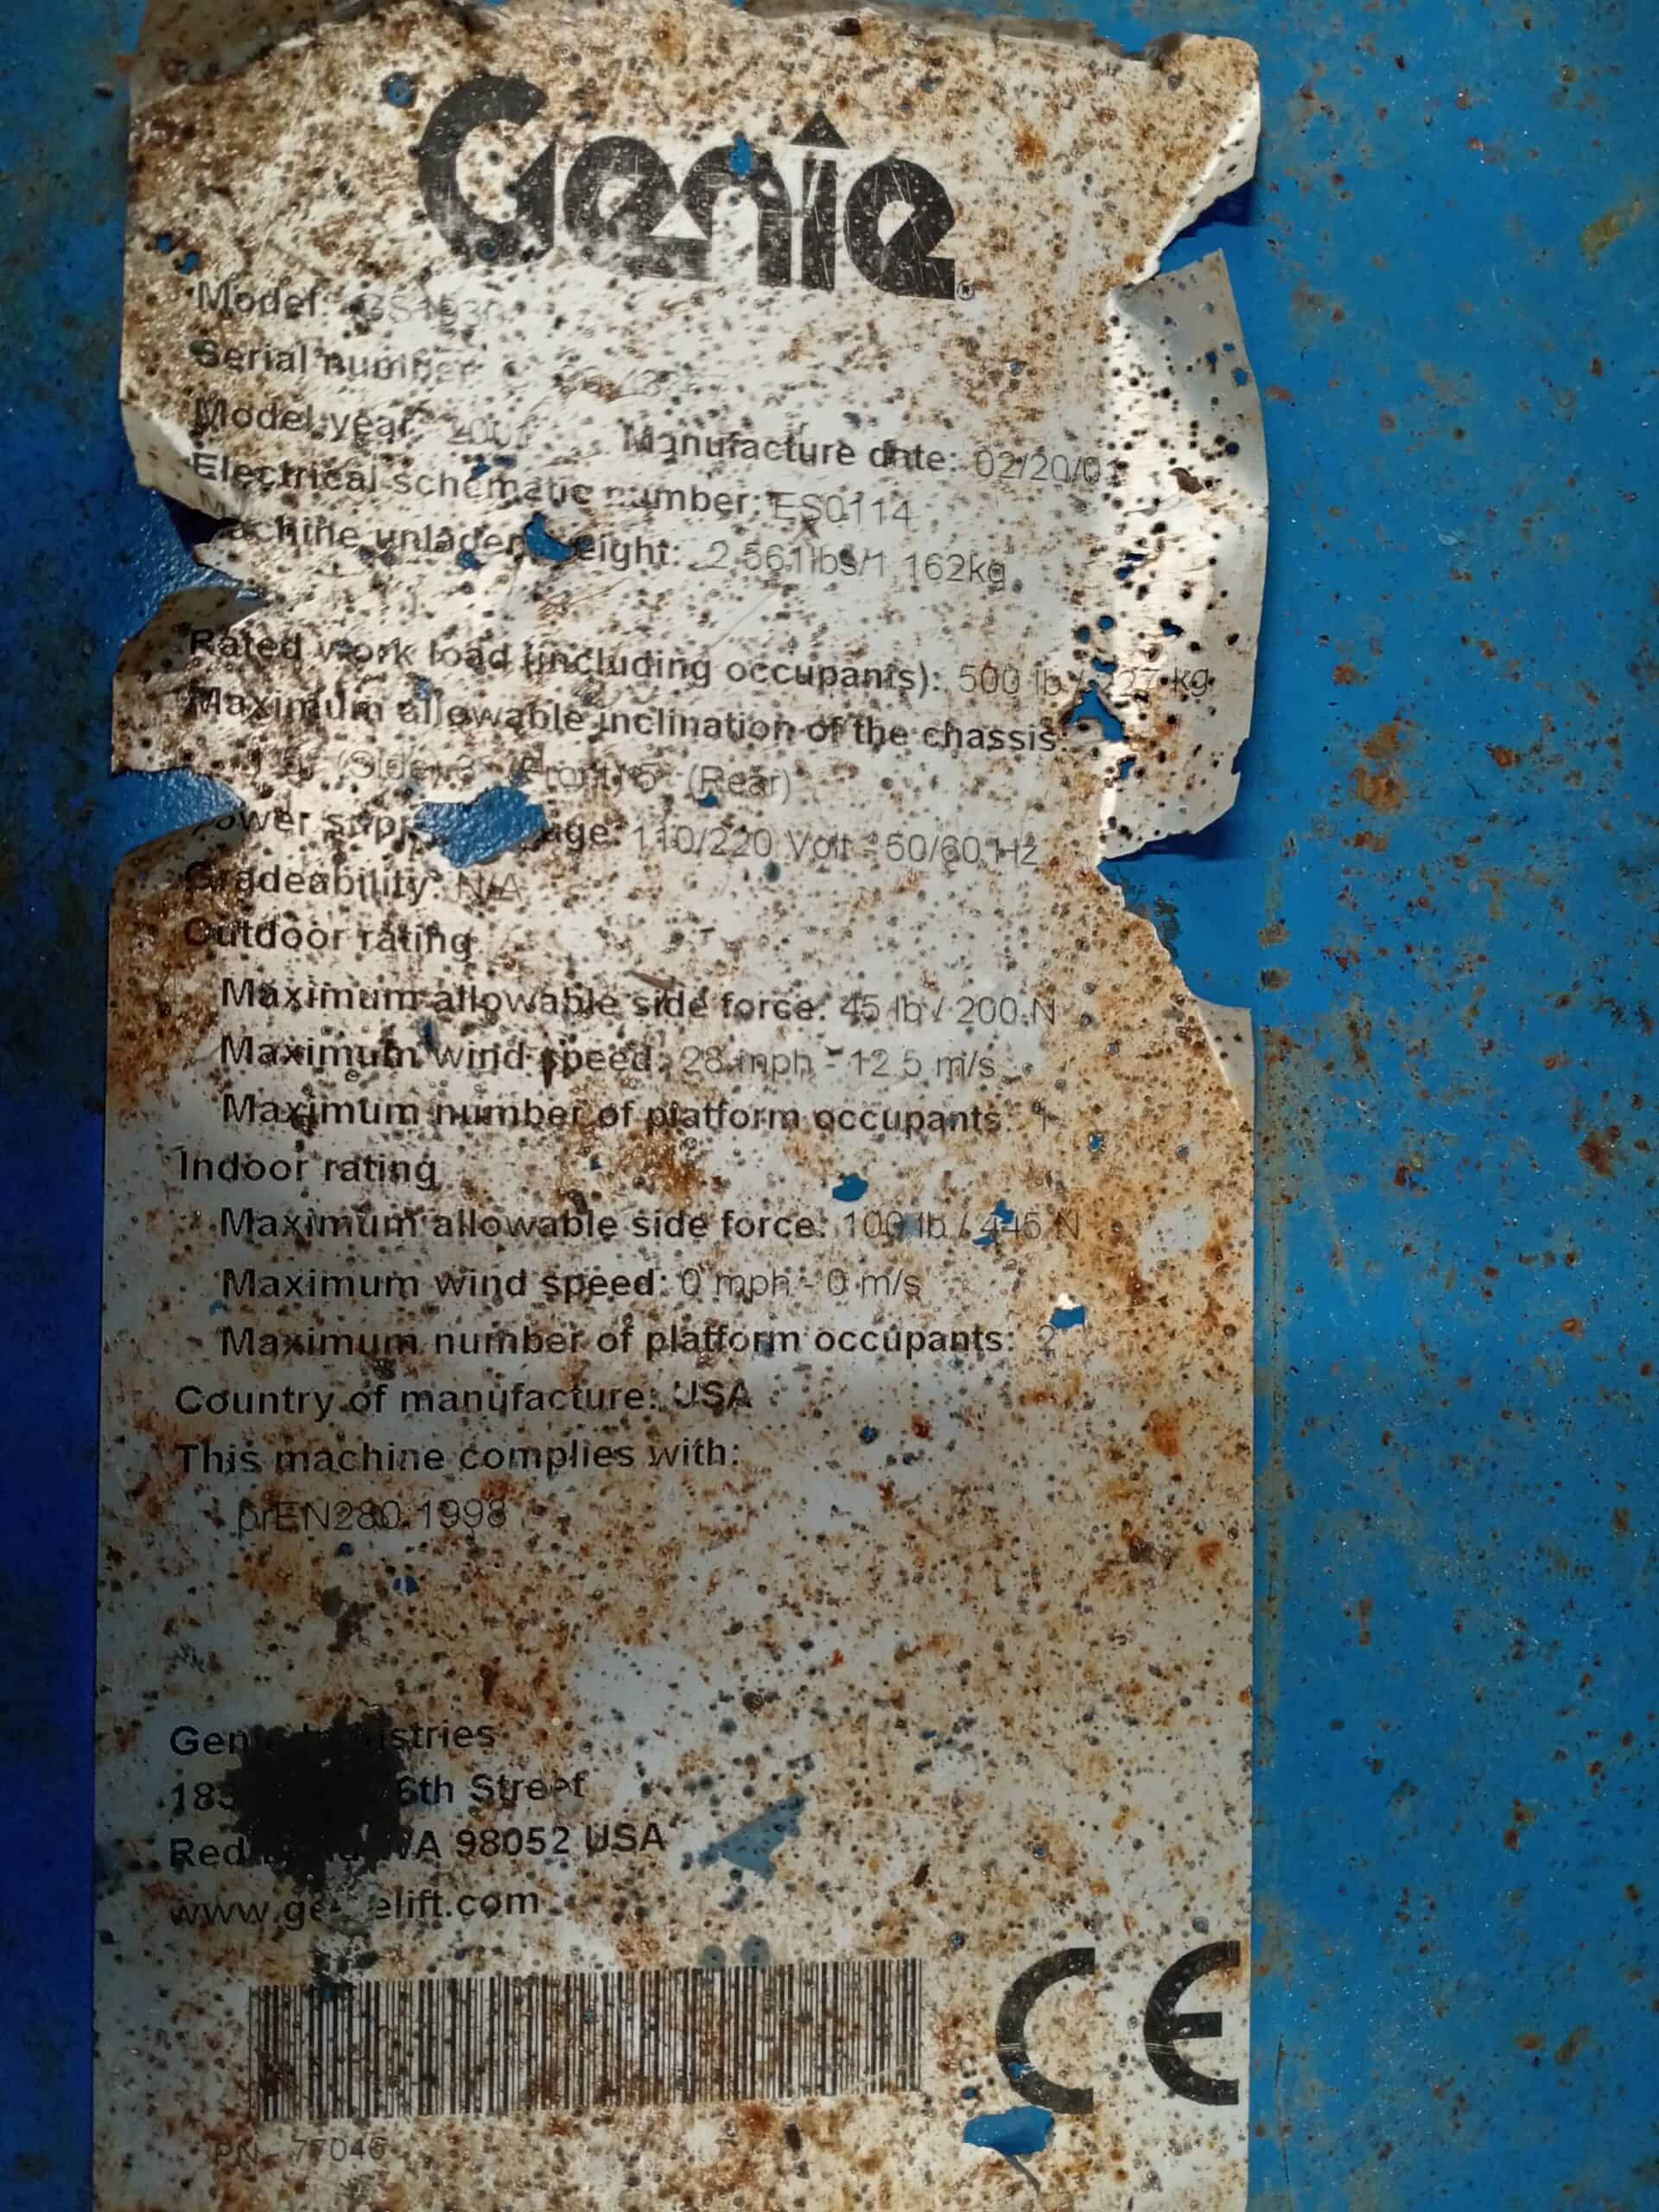 Genie
Model:
Serial number:
Model year: Manufacture date: 02/20/0
Electrical schematic number: ES0114
2,561lbs/1,162kg
Rated work load (including occupants): 500 lb / kg
Maximum allowable inclination of the chassis:
(Side) 3° (Front) 5° (Rear)
110/220 Volt - 50/60 Hz
Gradeability: N/A
Outdoor rating
Maximum allowable side force: 45 lb / 200 N
Maximum wind speed: 28 mph - 12.5 m/s
Maximum number of platform occupants: 1
Indoor rating
Maximum allowable side force: 100 lb / 445 N
Maximum wind speed: 0 mph - 0 m/s
Maximum number of platform occupants: 2
Country of manufacture: USA
This machine complies with:
prEN280:1998
6th Street
WA 98052 USA
PN - 77046
CE